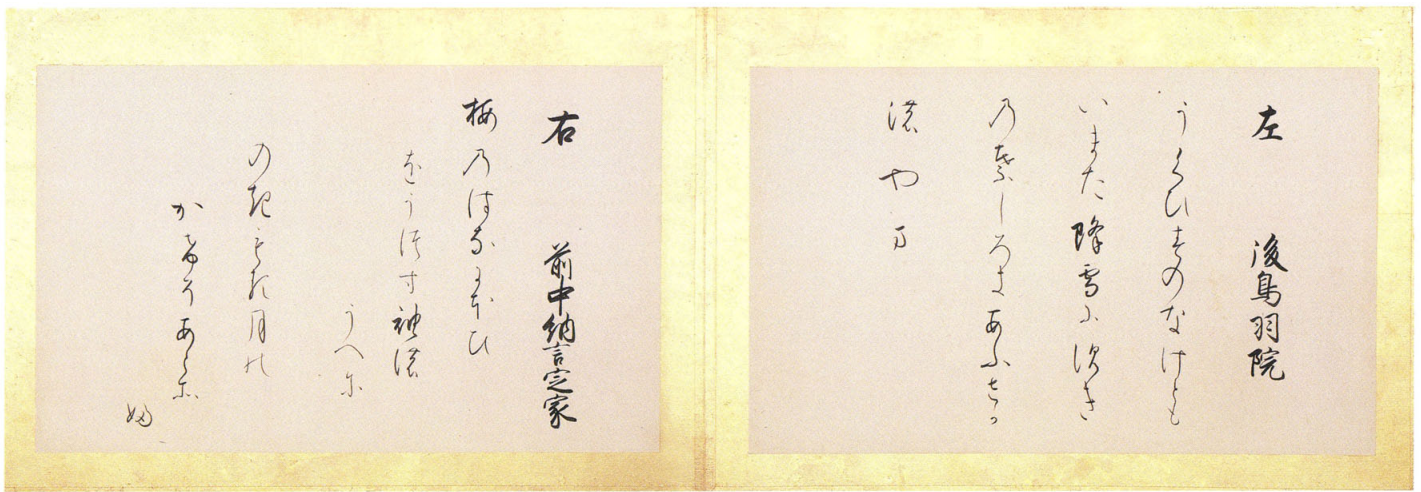 左 後鳥羽院
うくひすのなけとも
いまた降雪にすき
の葉しろきあふさか
のやま
右 前中納言定家
梅のはなにほひ
をうつす袖の
うへに
のきもる月の
かけそあらそ
ふ